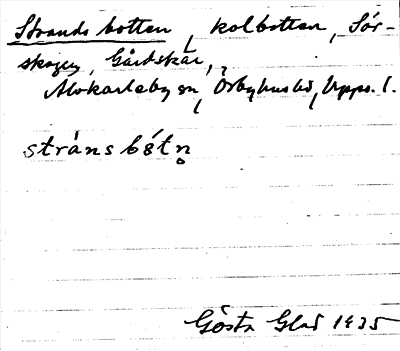 Strandsbotten, kolbotten, Sör-
skogen, Gårdskär,
Älvkarleby sn, Örbyhus hd, Upps. l.
strànsbót̥n̥
Gösta Glad 1935